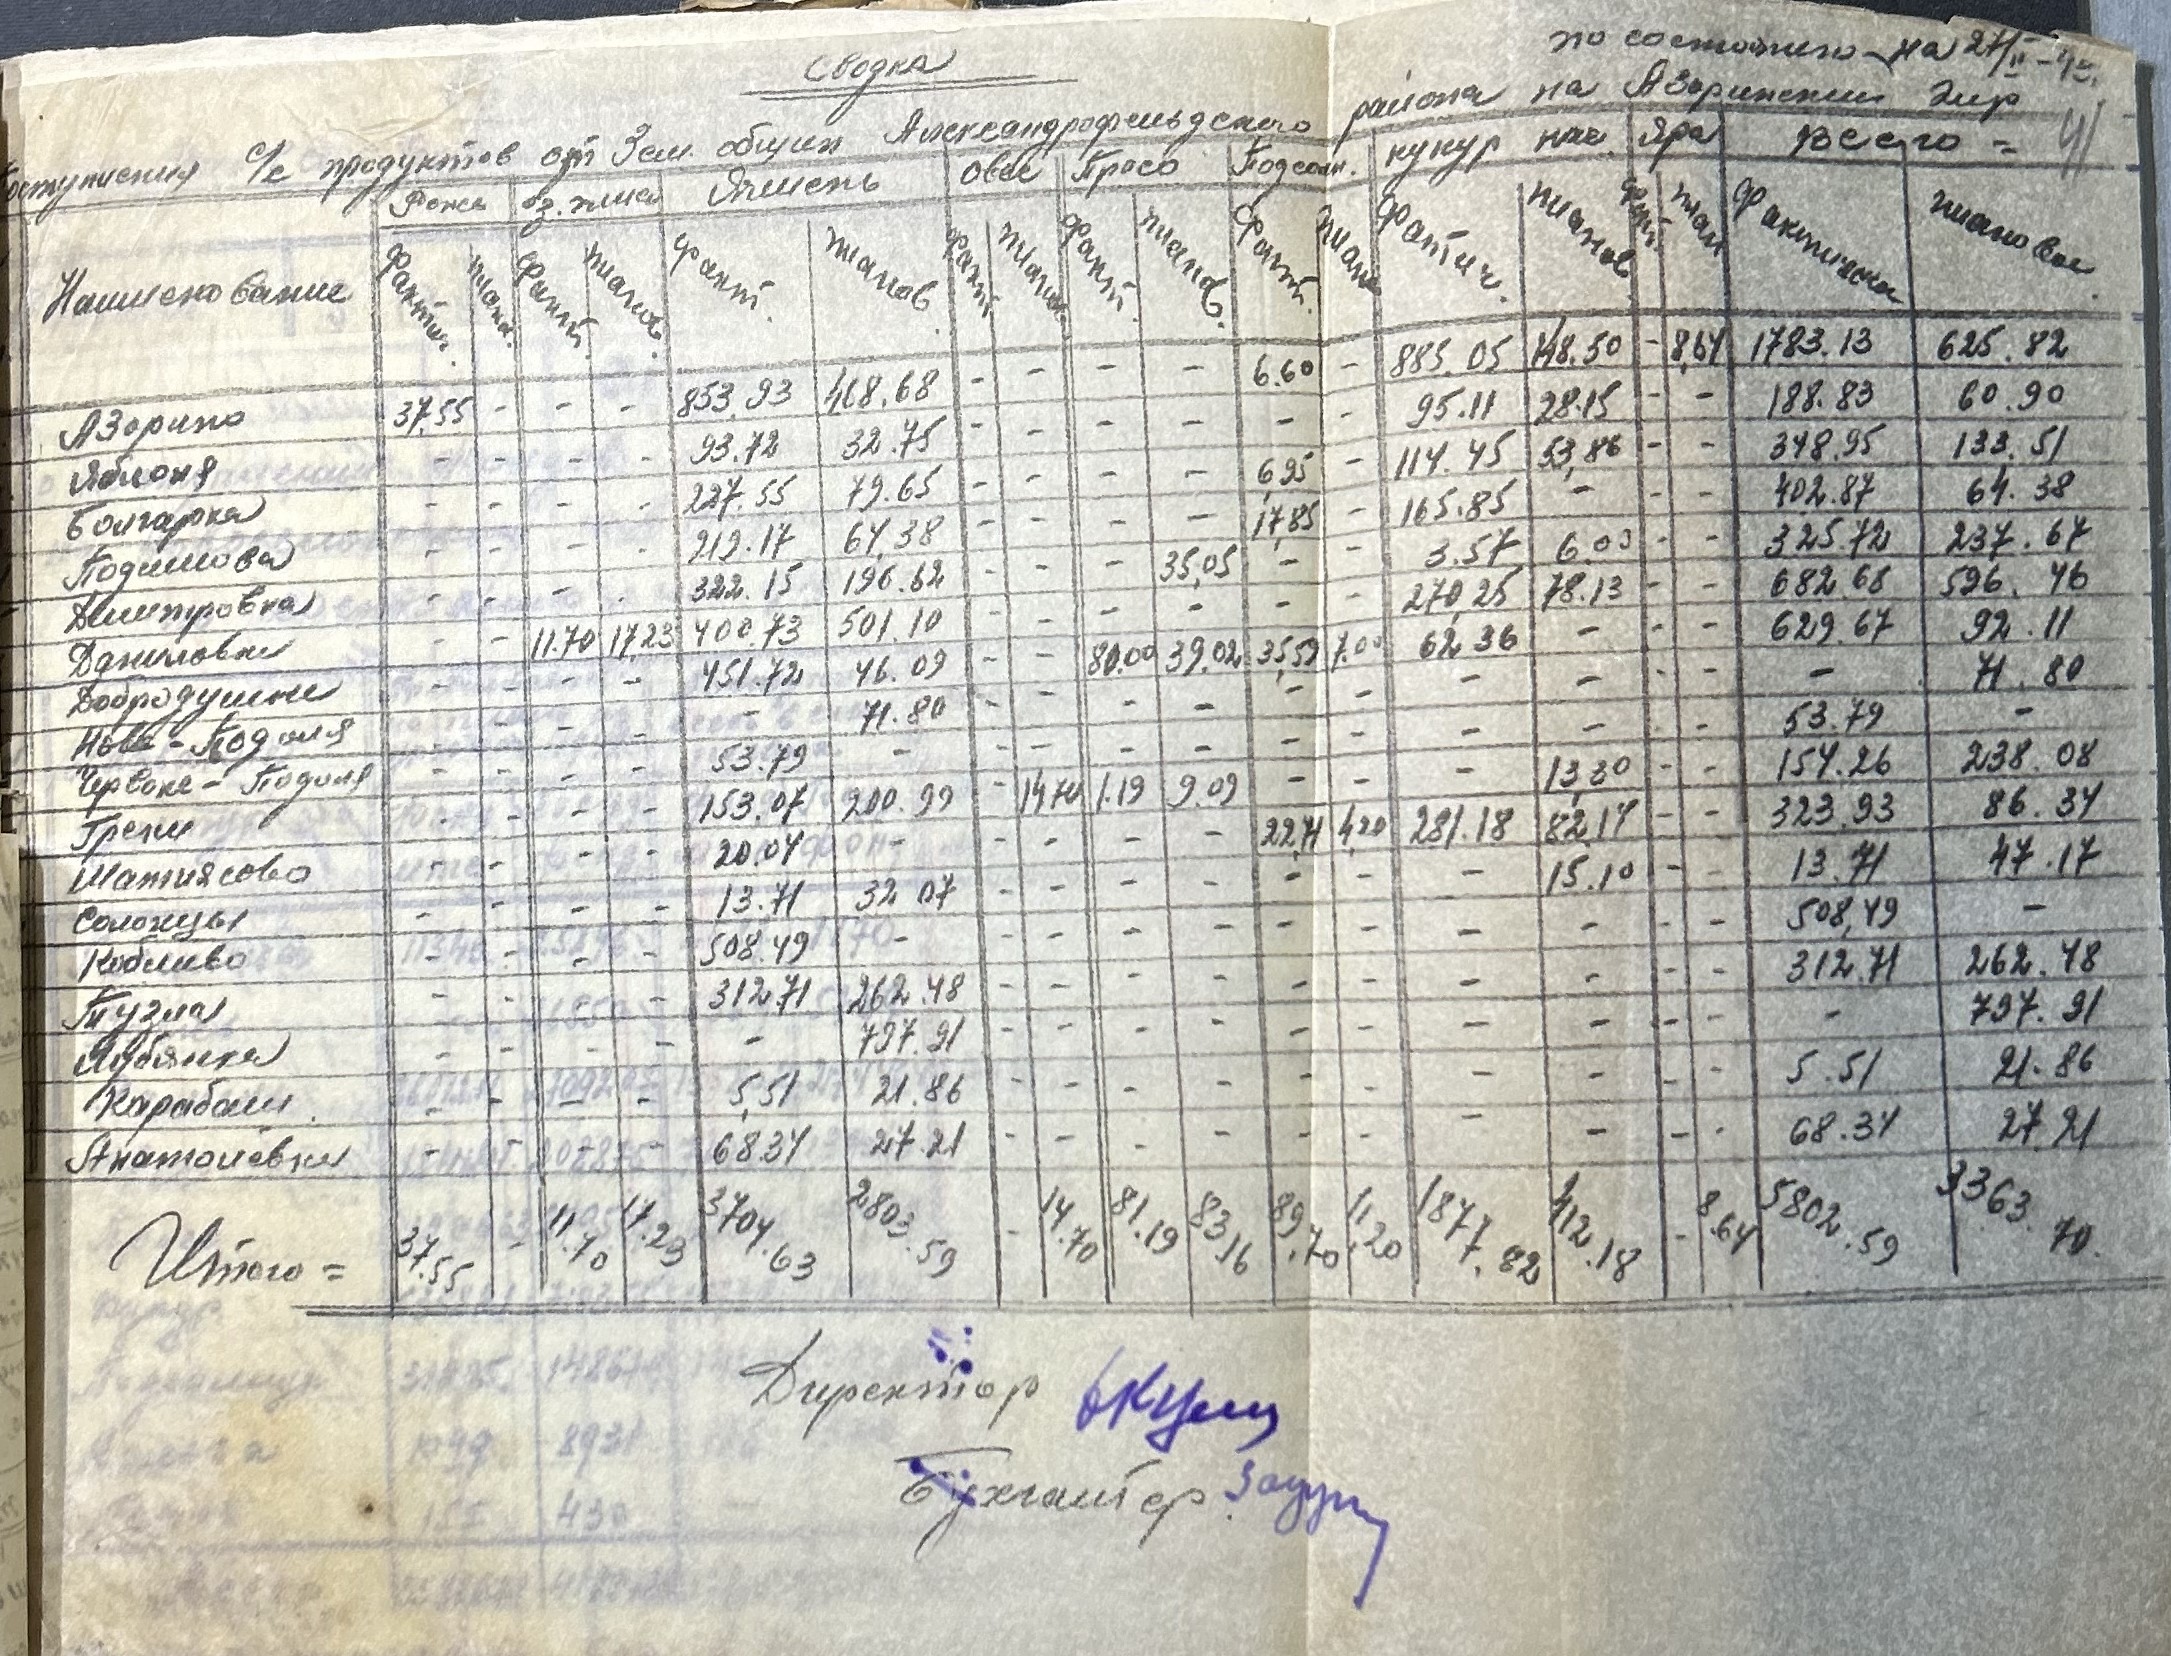 Сводка
по состоянию на 24/II-42.
Поступления с/х продуктов от Зем. общин Александрофельдского района на Азоринский Элир
41
Наименование Рожь оз. пшен Ячмень Овес Просо Подсолн. кукур пше. яра Всего =
фактич. план. факт. планов. факт. планов. факт. планов. факт. планов. факт. план. фактич. планов. факт. план фактически плановое
Азорино 37,55 - - - 853,93 468,68 - - - - 6.60 - 885.05 148.50 - 8,64 1783.13 625.82
Яблоня - - - - 93.72 32.75 - - - - - - 95.11 28.15 - - 188.83 60.90
Болгарка - - - - 227.55 79.65 - - - - 6,95 - 114.45 53,86 - - 348.95 133.51
Подимова - - - - 219.17 64,38 - - - - 17,85 - 165.85 - - - 402.87 64.38
Дмитровка - - - - 322.15 196.62 - - - 35,05 - - 3.57 6.00 - - 325.72 237.67
Даниловка - - 11.70 17,23 400.73 501.10 - - - - - - 270,25 78.13 - - 682.68 596.46
Добродушна - - - - 451.72 46.09 - - 80.00 39,02 35,59 7.00 62,36 - - - 629.67 92.11
Ново-Подоля - - - - - 71.80 - - - - - - - - - - - 71.80
Червоне-Подоля - - - - 53.79 - - - - - - - - - - - 53.79 -
Греки - - - - 153.07 200.99 - 14,70 1.19 9.09 - - - 13,30 - - 154.26 238.08
Матиясово - - - - 20.04 - - - - - 22,71 4,20 281.18 82,14 - - 323.93 86.34
Солонцы - - - - 13.71 32.07 - - - - - - - 15.10 - - 13.71 47.17
Коблево - - - - 508.49 - - - - - - - - - - - 508,49 -
Тузла - - - - 312.71 262.48 - - - - - - - - - - 312.71 262.48
Лубянка - - - - - 797.91 - - - - - - - - - - - 797.91
Карабаш. - - - - 5,51 21.86 - - - - - - - - - - 5.51 21.86
Анатолевка - - - - 68.34 27.21 - - - - - - - - - - 68.34 27.21
Итого = 37.55 - 11.70 17.23 3704.63 2803.59 - 14.70 81.19 83.16 89.70 11.20 1877.82 412.18 - 8.64 5802.59 3363.70.
Директор
Бухгалтер.